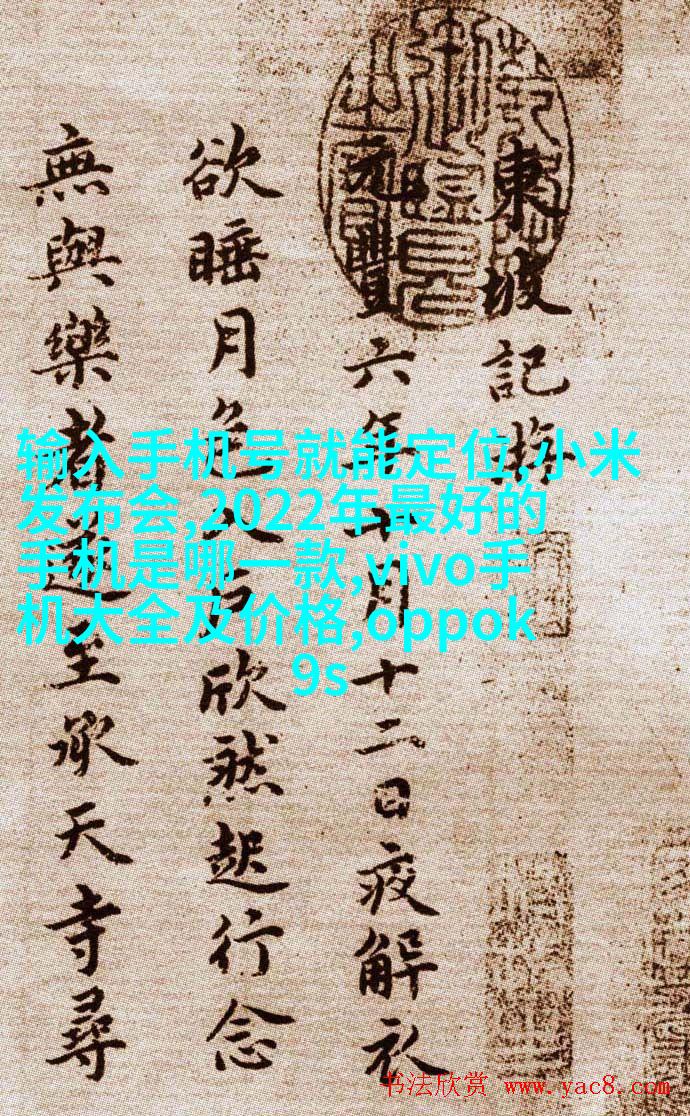 東坡記
元豐六年十月十二日夜解衣
欲睡月色入户欣然起行念
無與樂者遂至承天寺尋
输入手机号就能定位,小米
发布会,2022年最好的
手机是哪一款,vivo手
机大全及价格,oppok
9s
书法欣赏 www.yac8.com